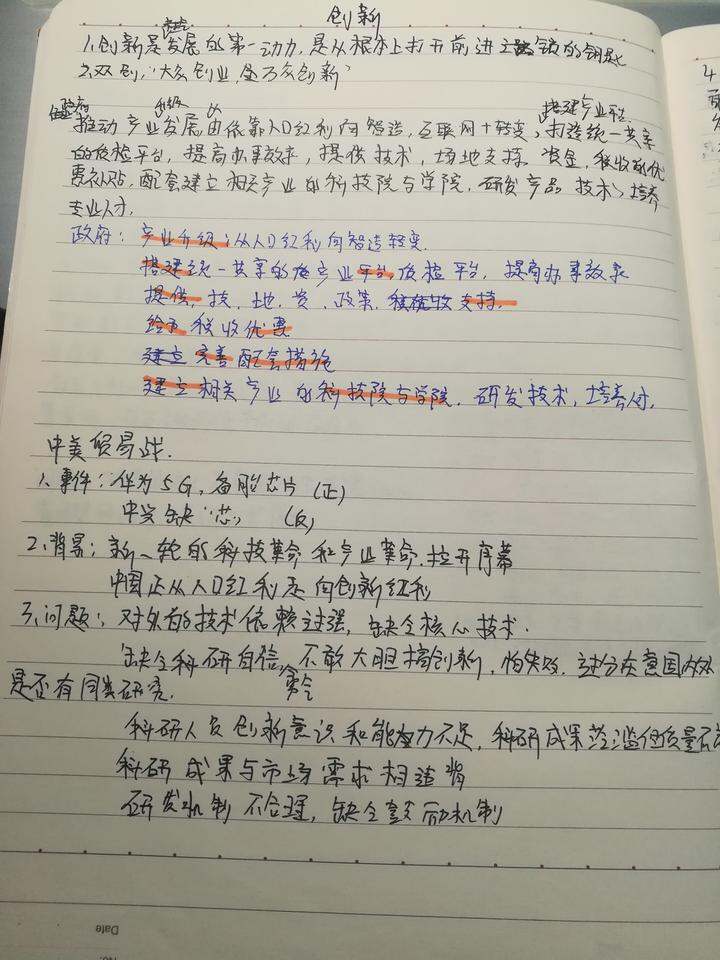 创新
1、创新是发展的第一动力,是从根本上打开前进之锁的钥匙
2、双创:“大众创业,万众创新”
政府 升级 从 搭建产业平台
推动产业发展由依靠人口红利向智造,互联网+转变,打造统一共享
的质检平台,提高办事效率,提供技术,场地支持。资金,税收的优
惠补贴,配套建立相关产业的科技院与学院,研发产品技术,培养
专业人才。
政府:产业升级:从人口红利向智造转变.
搭建统一共享的产业平台,质检平台,提高办事效率
提供,技、地、资、政策,支持.
给予税收优惠
建立完善配套措施
建立相关产业的科技院与学院.研发技术,培养人才.
中美贸易战.
1、事件:华为5G,备胎芯片(正)
中兴缺“芯” (反)
2、背景:新一轮的科技革命和产业革命.拉开序幕
中国正从人口红利走向创新红利
3、问题:对外的技术依赖过强,缺乏核心技术.
缺乏科研自信,不敢大胆搞创新,怕失败.过分在意国内外
勇气
是否有同类研究.
科研人员创新意识和能力不足,科研成果泛滥但质量不高
科研成果与市场需求相违背
研发机制不合理,缺乏鼓励机制
4
Date
No.